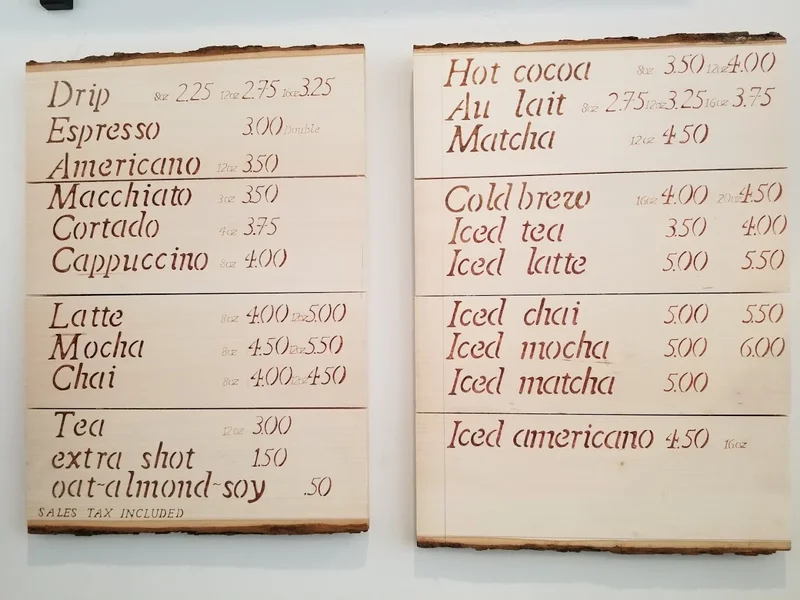 Drip 8oz 2.25 12oz 2.75 16oz 3.25
Espresso 3.00 Double
Americano 12oz 3.50
Macchiato 3oz 3.50
Cortado 4oz 3.75
Cappuccino 8oz 4.00
Latte 8oz 4.00 12oz 5.00
Mocha 8oz 4.50 12oz 5.50
Chai 8oz 4.00 12oz 4.50
Tea 12oz 3.00
extra shot 1.50
oat~almond~soy .50
SALES TAX INCLUDED
Hot cocoa 8oz 3.50 12oz 4.00
Au lait 8oz 2.75 12oz 3.25 16oz 3.75
Matcha 12oz 4.50
Cold brew 16oz 4.00 20oz 4.50
Iced tea 3.50 4.00
Iced latte 5.00 5.50
Iced chai 5.00 5.50
Iced mocha 5.00 6.00
Iced matcha 5.00
Iced americano 4.50 16oz